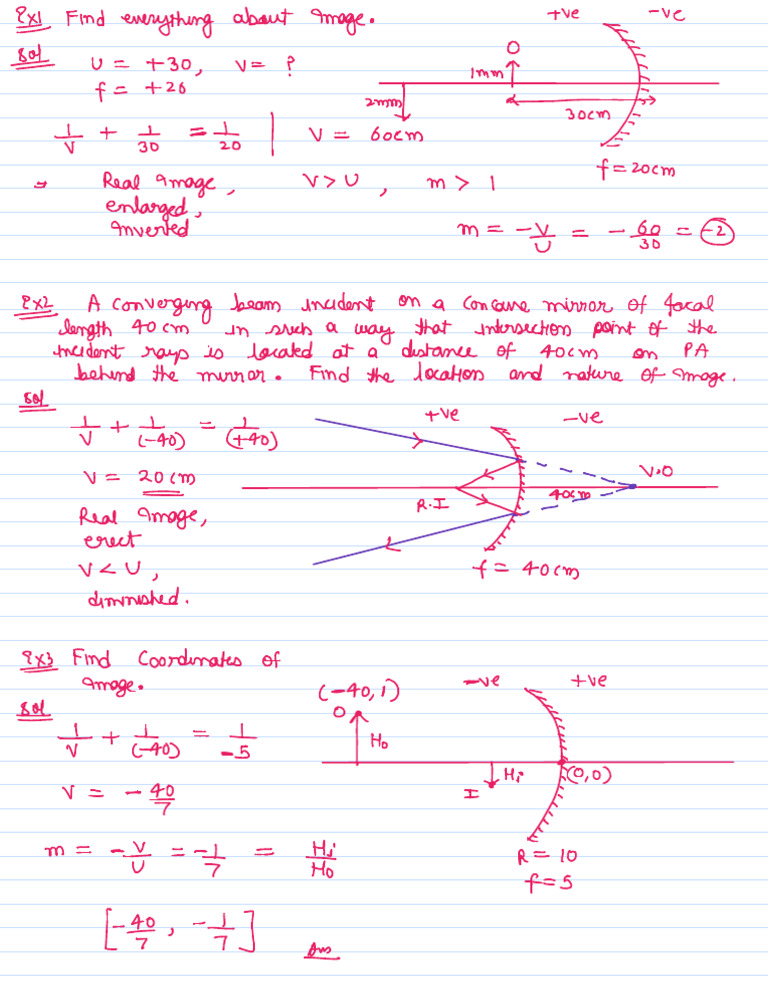 Ex1 Find everything about Image.
+ve -ve
Sol
U = +30, V = ?
f = +20
O
1mm
2mm
30cm
1/V + 1/30 = 1/20 | V = 60cm
f = 20cm
⇒ Real Image, V > U, m > 1
enlarged,
Inverted
m = -V/U = -60/30 = -2
Ex2 A converging beam incident on a concave mirror of focal
length 40cm in such a way that intersection point of the
incident rays is located at a distance of 40cm on PA
behind the mirror. Find the location and nature of image.
Sol
+ve -ve
1/V + 1/(-40) = 1/(+40)
V = 20cm
V.O
40cm
R.I
Real Image,
erect
V < U,
diminished.
f = 40cm
Ex3 Find Coordinates of
Image.
-ve +ve
(-40,1)
Sol
O
H₀
1/V + 1/(-40) = 1/-5
Hi (0,0)
I
V = -40/7
m = -V/U = -1/7 = Hi/H₀
R = 10
f = 5
[-40/7, -1/7]
Ans